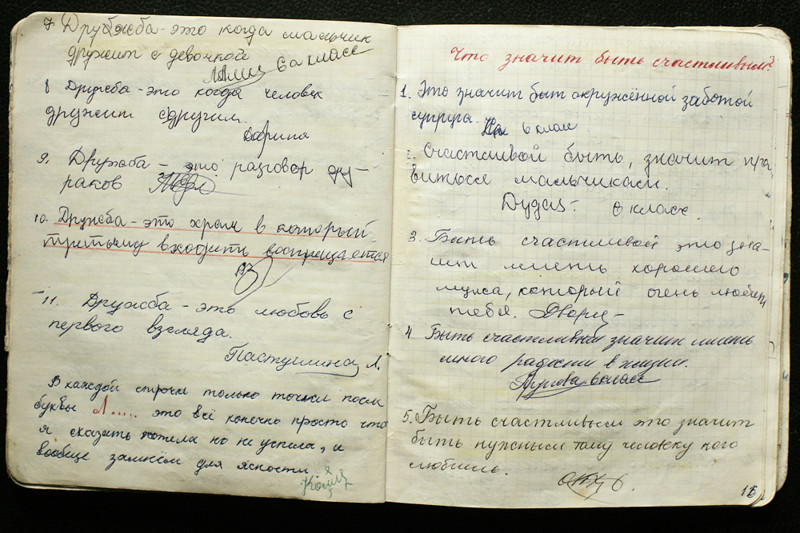 7. Дружба - это когда мальчик
дружит с девочкой
6 а класс
8 Дружба - это когда человек
дружит с другим.
9. Дружба - это разговор ду-
раков
10. Дружба - это храм в который
третьему входить воспрещается
11. Дружба - это любовь с
первого взгляда.
Пастушина Л.
В каждой строчке только точки после
буквы Л..... это всё конечно просто что
я сказать хотела но не успела, и
вообще замнём для ясности
Что значит быть счастливым?
1. Это значит быт окружённой заботой
супруга. 6 класс
2. Счастливой быть, значит нра
виться мальчикам.
6 класс.
3. Быть счастливой это зна-
чит иметь хорошего
мужа, который очень любит
тебя.
4 Быть счастливой значит иметь
много радости в жизни.
5. Быть счастливым это значит
быть нужным тому человеку кого
любишь.